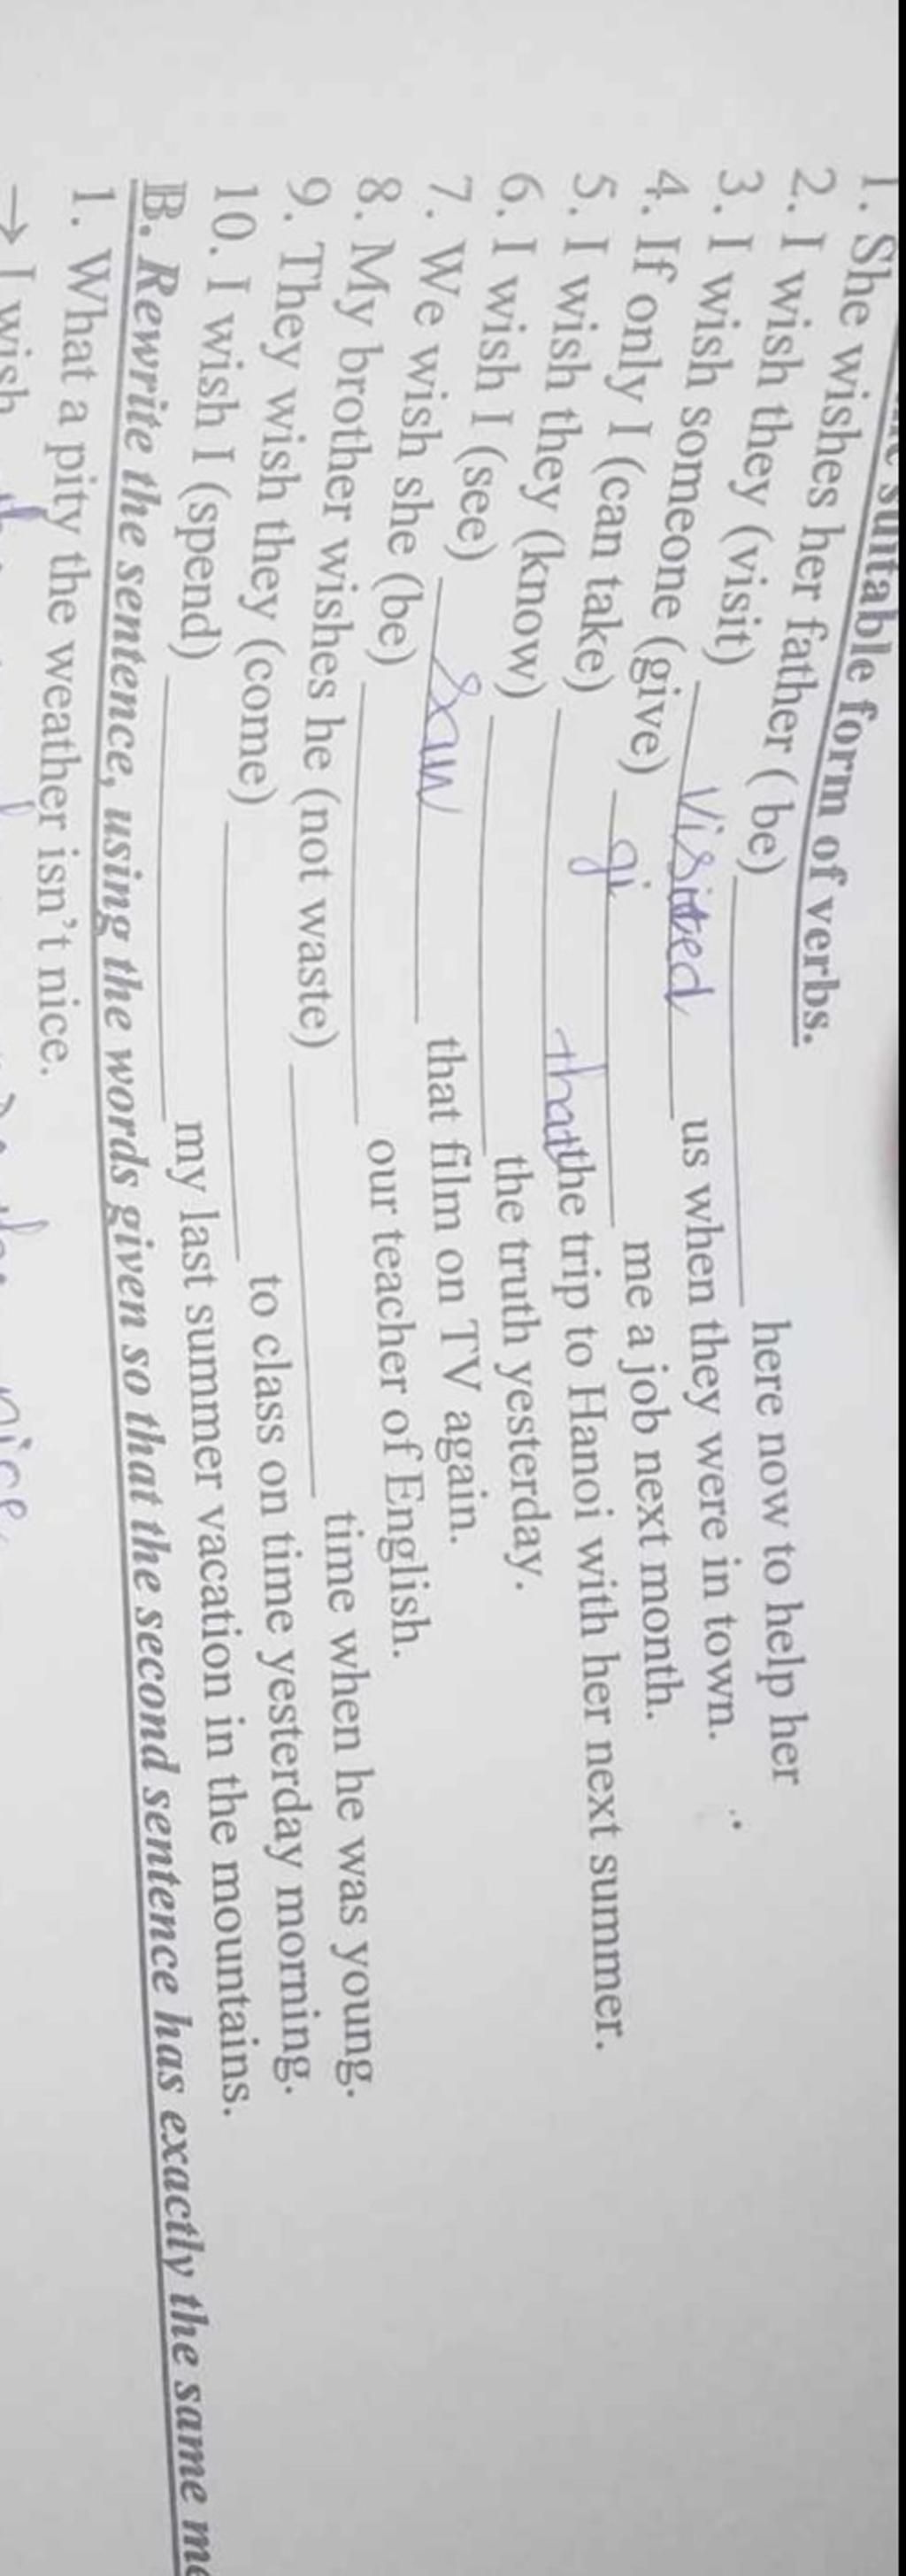 suitable form of verbs.
1. She wishes her father ( be) ____________ here now to help her
2. I wish they (visit) Visited us when they were in town.
3. I wish someone (give) gi me a job next month.
4. If only I (can take) that the trip to Hanoi with her next summer.
5. I wish they (know) ____________ the truth yesterday.
6. I wish I (see) saw that film on TV again.
7. We wish she (be) ____________ our teacher of English.
8. My brother wishes he (not waste) ____________ time when he was young.
9. They wish they (come) ____________ to class on time yesterday morning.
10. I wish I (spend) ____________ my last summer vacation in the mountains.
B. Rewrite the sentence, using the words given so that the second sentence has exactly the same
1. What a pity the weather isn't nice.
→ I wish nice